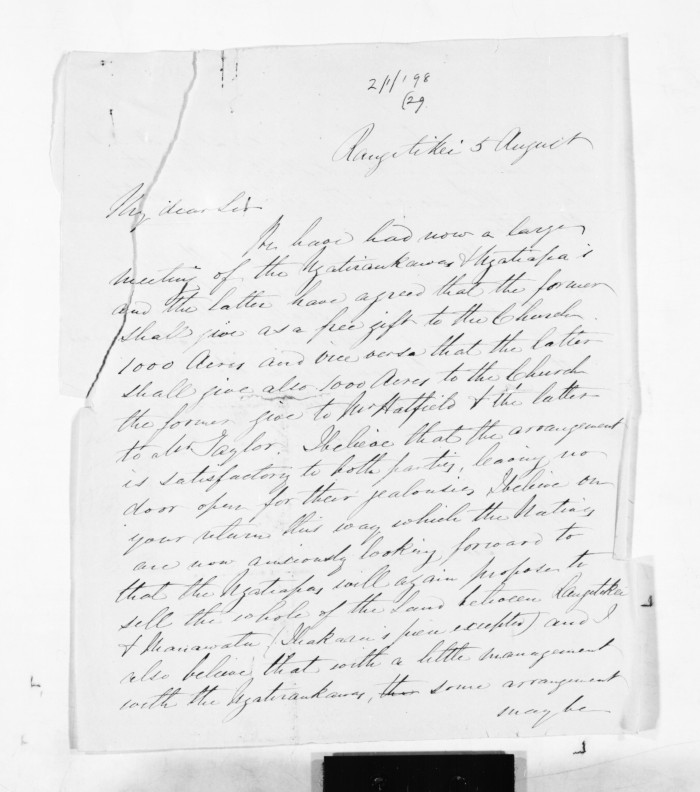 2/1/198
(29
Rangitikei 5 August
My dear Sir
We have had now a large
meeting of the Ngatiraukawas & Ngatiapa's
and the latter have agreed that the former
shall give as a free gift to the Church
1000 Acres and vice versa that the latter
shall give also 1000 Acres to the Church
the former give to Mr Hatfield & the latter
to Mr Taylor. I believe that the arrangement
is satisfactory to both parties, leaving no
door open for their jealousies, I believe on
your return this way which the Natives
are now anxiously looking forward to
that the Ngatiapas will again propose to
sell the whole of the Land between Rangitikei
& Manawatu (Ihakara's piece excepted) and I
also believe that with a little management
with the Ngatiraukawas, some arrangement
may be